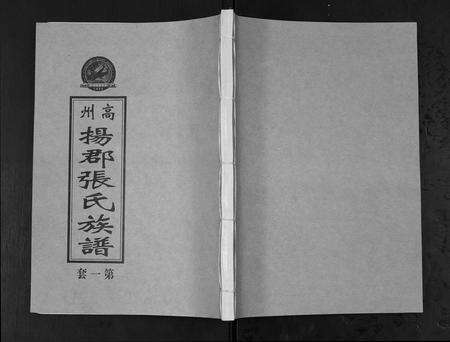 高州
揚郡張氏族譜
第一套